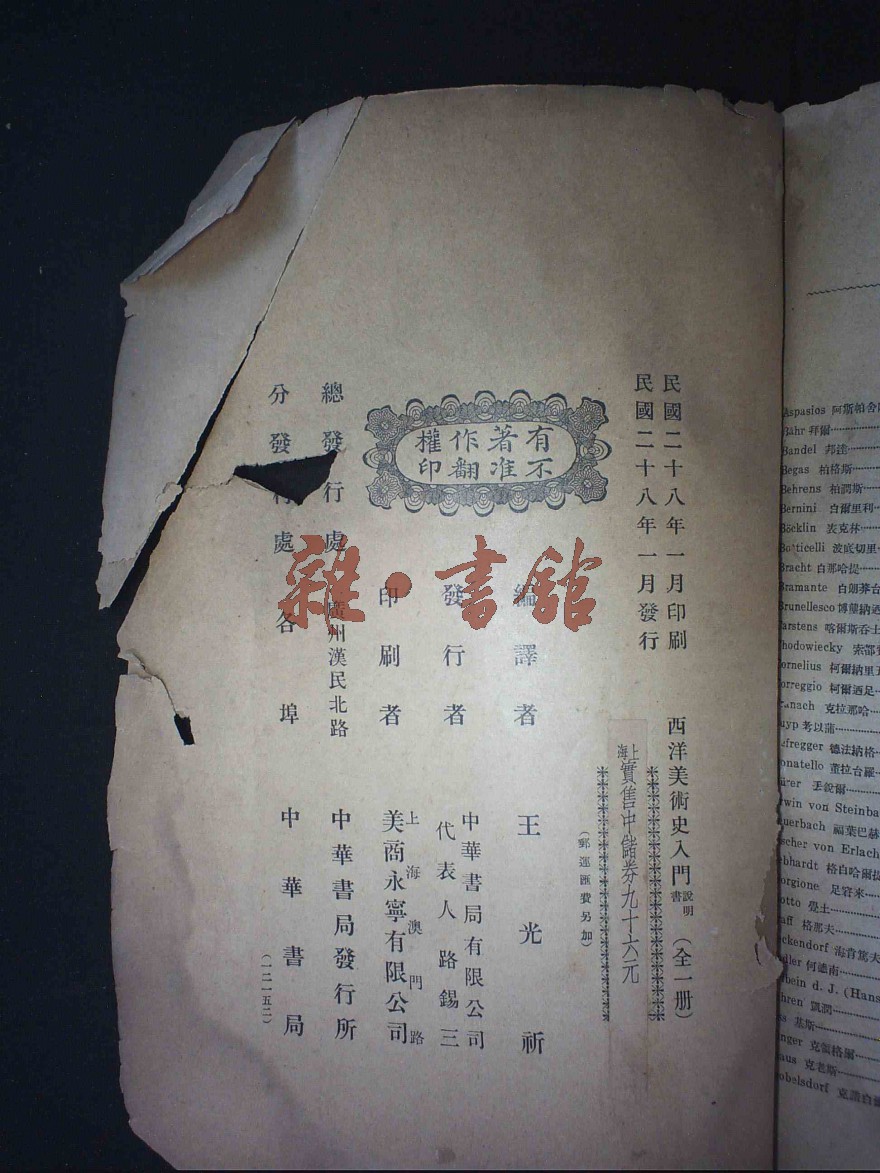 民國二十八年一月印刷
民國二十八年一月發行
西洋美術史入門說明書（全一册）
上海實售中儲券九十六元
（郵運匯費另加）
有著作權
不准翻印
編譯者 王光祈
發行者 中華書局有限公司
代表人路錫三
印刷者 上海澳門路
美商永寧有限公司
總發行處 廣州漢民北路 中華書局發行所
分發行處 各埠 中華書局
（一二一五二）
雜·書館
Aspasios 阿斯帕舍
Bähr 拜爾
Bandel 邦
Begas 柏格斯
Behrens 柏潤斯
Bernini 白爾里利
Böcklin 表克林
Botticelli 波底切里
Bracht 白那哈提
Bramante 白朗莽台
Brunellesco 博蘿納
Carstens 喀爾斯吞
Chodowiecky 索都
Cornelius 柯爾納里
Correggio 柯爾
克拉那哈
考以蒲
德法納格
董拉台羅
爾
win von Steinba
福葉巴赫
scher von Erlach
格白哈爾
足
覺土
格那夫
ckendorf 海肯篤夫
何德南
bein d. J. (Hans
凱潤
基斯
克
格爾
克老斯
obelsdorf 克